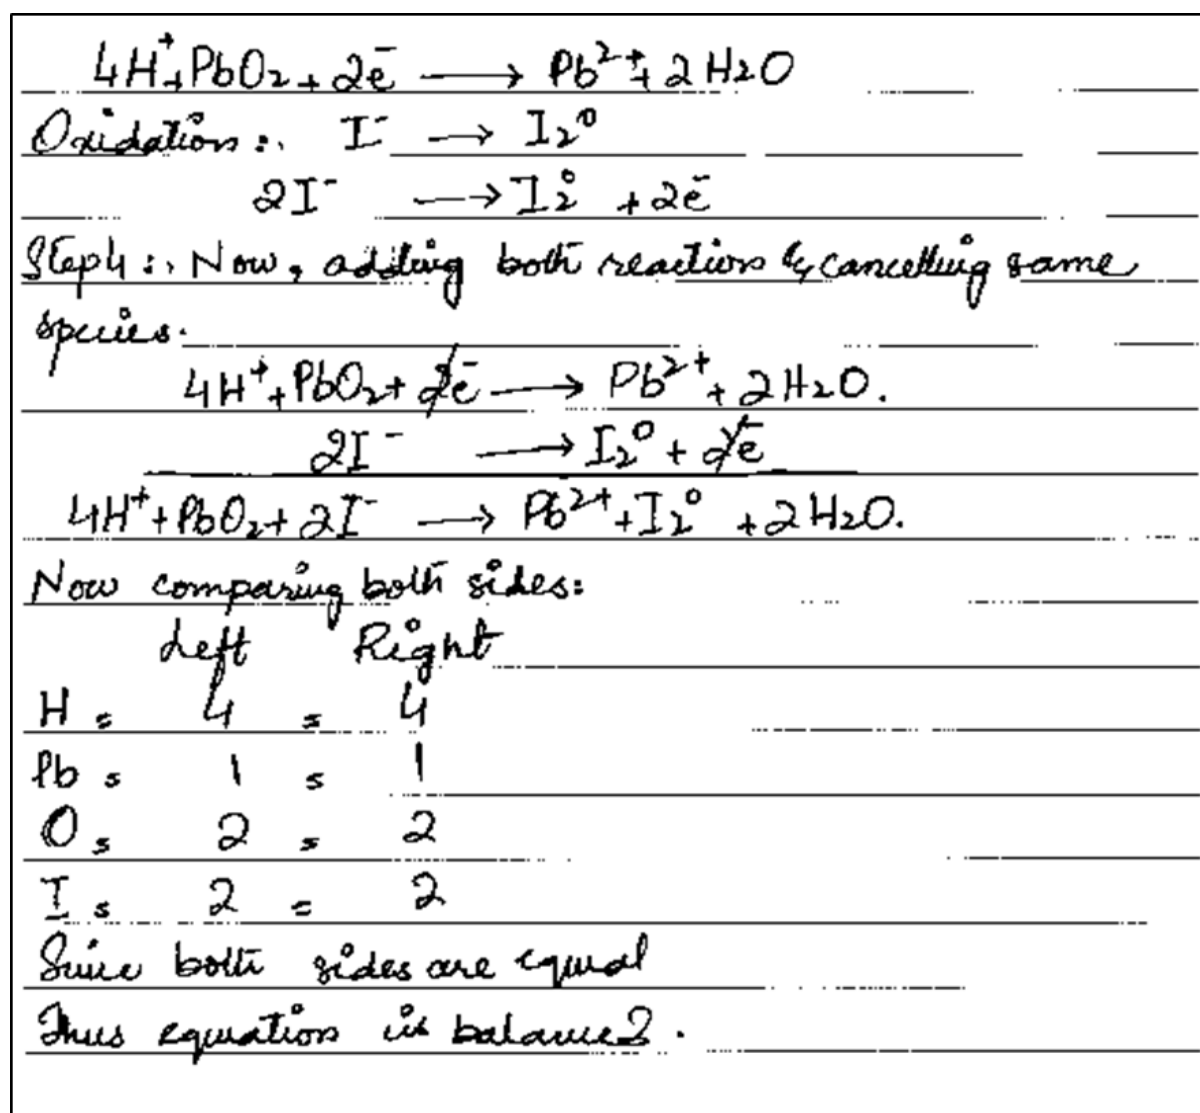 4H⁺+PbO₂+2e⁻ ⟶ Pb²⁺+2H₂O
Oxidation:. I⁻ ⟶ I₂⁰
2I⁻ ⟶ I₂⁰ +2e⁻
Step4:. Now, adding both reaction & cancelling same
species.
4H⁺+PbO₂+2e⁻ ⟶ Pb²⁺+2H₂O.
2I⁻ ⟶ I₂⁰+2e⁻
4H⁺+PbO₂+2I⁻ ⟶ Pb²⁺+I₂⁰ +2H₂O.
Now comparing both sides:
Left Right
H = 4 = 4
Pb = 1 = 1
O = 2 = 2
I = 2 = 2
Since both sides are equal
Thus equation is balanced.